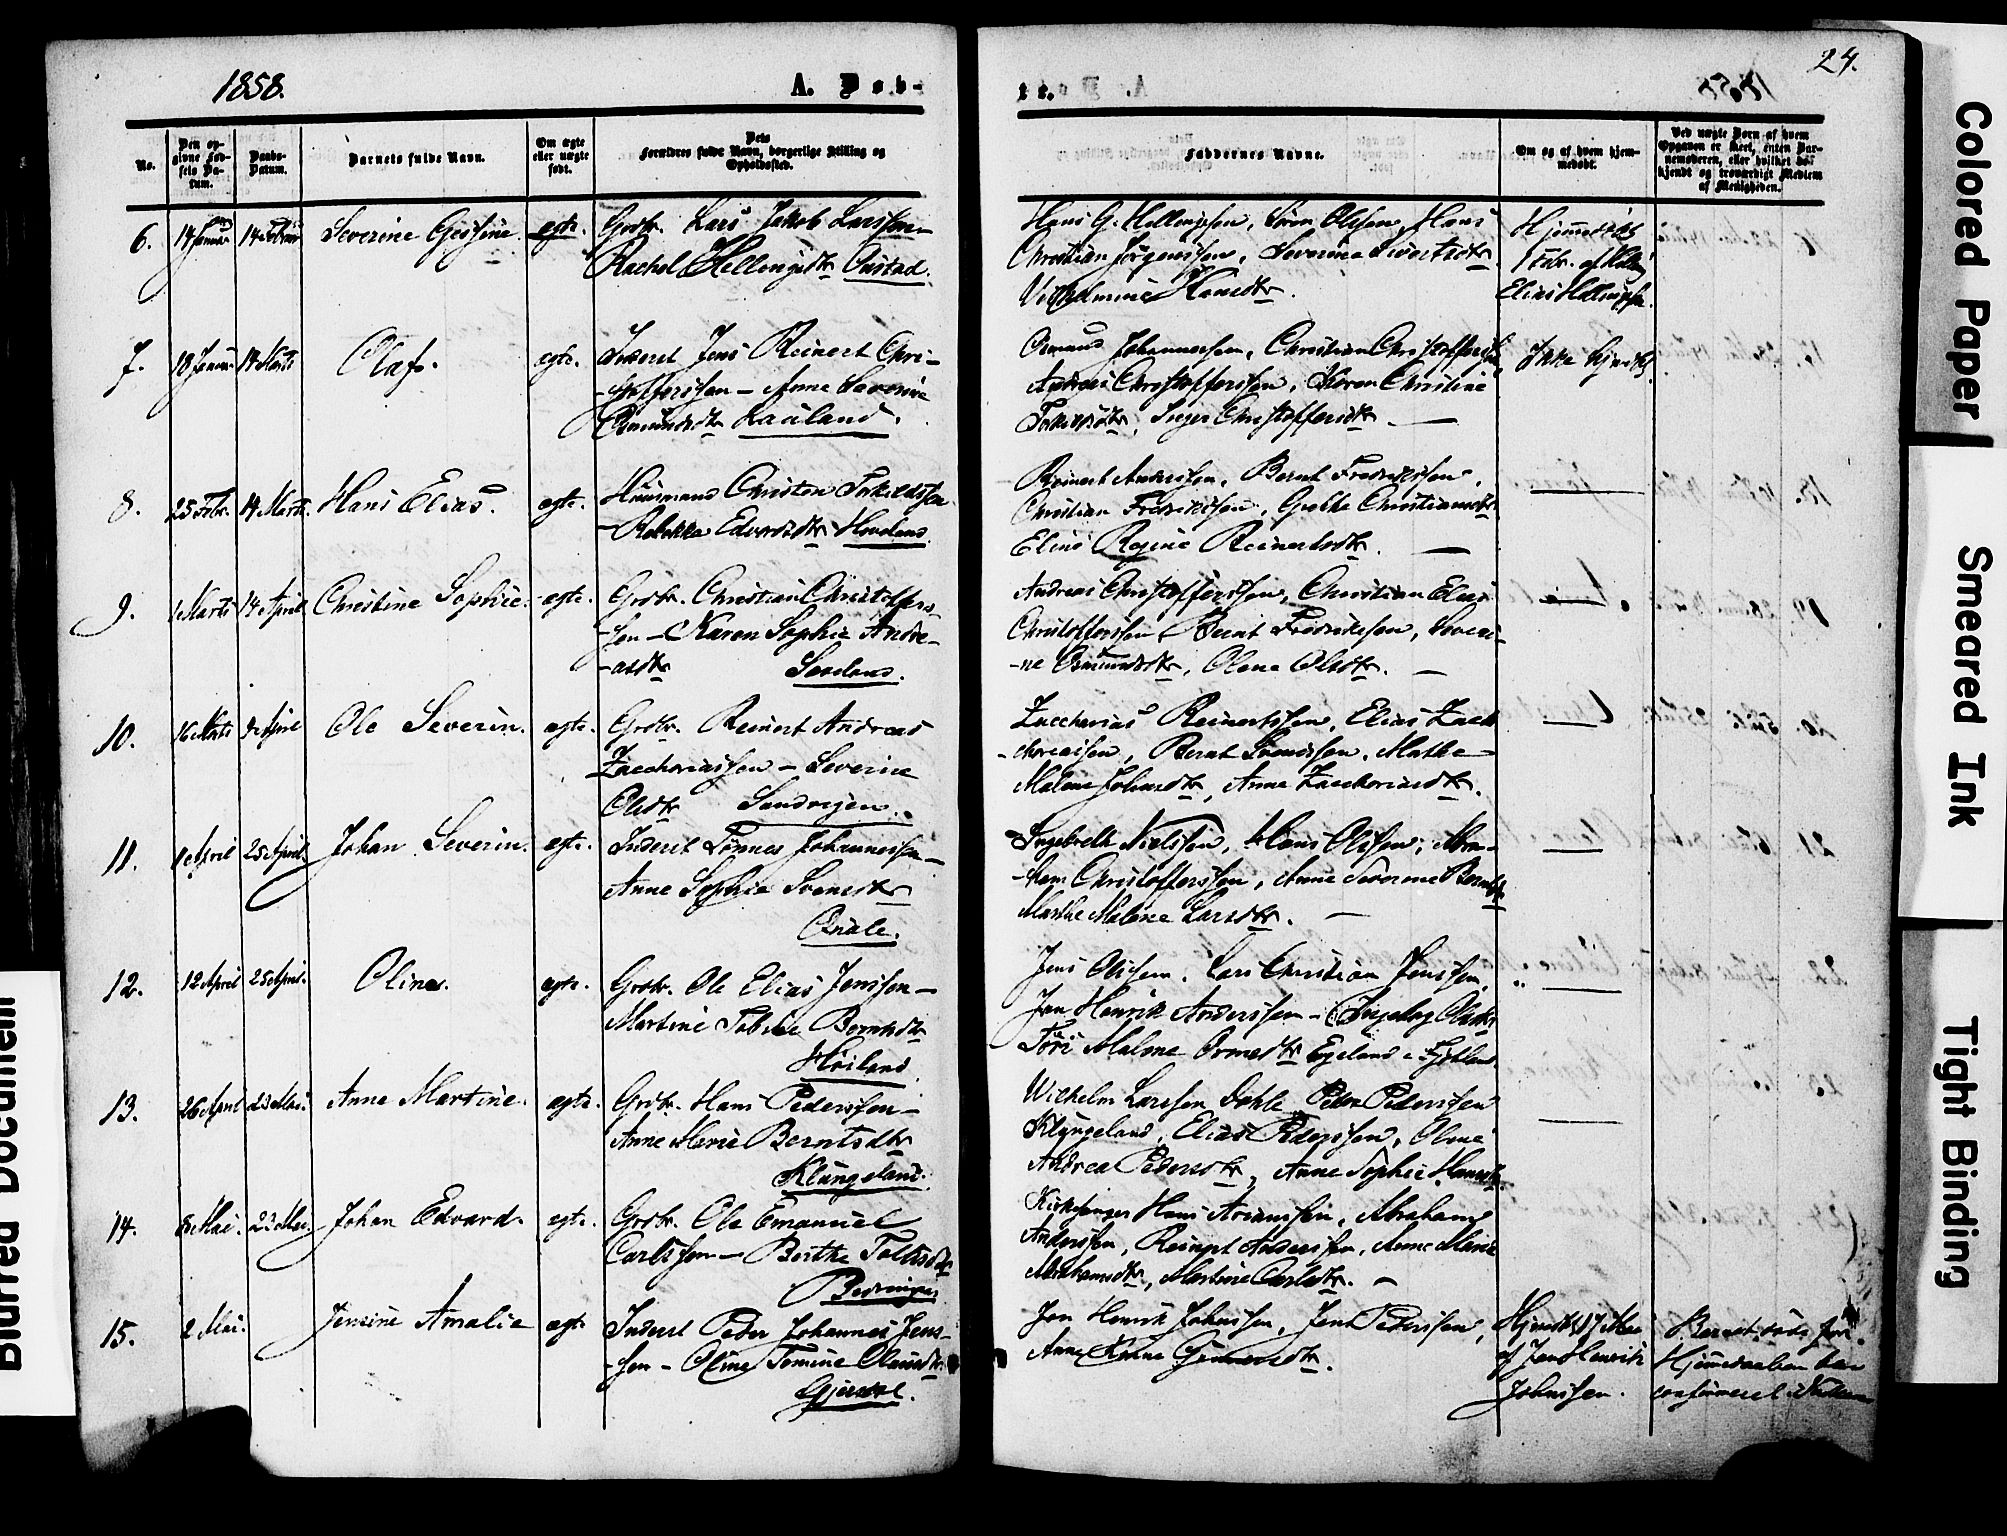 1858.
A. Døb-
te.
24.
No.
Den op-
givne Fød-
sels Da-
tum.
Daabs-
Datum.
Barnets fulde Navn.
Om ægte
eller uægte
født.
Dets
Forældres fulde Navn, borgerlige Stilling og
Opholdssted.
Faddernes Navne.
Om og af hvem hjem-
medøbt.
Ved uægte Børn af hvem
Opgaven er skeet, enten Bar-
nemoderen, eller hvilket be-
kjendt og troværdigt Medlem
af Menigheden.
6. 14 Januar 14 Februar Severine Gesine. egte. Grdbr. Lars Jakob Larssen
Rachel Hellengsdtr
Hans G. Hellingsen, Søren Olssen, Hans
Christian Jørgenssen, Severine Sivertsdtr.
Vilhelmine Hansdtr.
Hjemmedøbt
Febr. af
Elias
7. 18 Januar 14 Marts Olaf. egte. Inderst Jens Reinert Chri-
-stofferssen - Anne Severine
Osmundsdtr Lauland.
Osmund Johannessen, Christian Christofferssen
Andreas Christofferssen, Karen Christine
Inger Christoffersdtr. —
Ikke hjemdbt
8. 25 Febr. 14 Marts. Hans Elias. egte. Huusmand Christen Terkeldssen
- Rebekka Edvardsdtr Hoveland
Reinert Anderssen, Bernt Fredrikssen,
Christian Fredrikssen, Grethe Christiansdtr.
Eline Regine Reinertsdtr. —
9. 1 Marts 14 April Christine Sophie. egte. Grdbr. Christian Christoffers-
sen - Karen Sophie Andre-
-asdtr
Andreas Christofferssen, Christian Elias
Christofferssen, Bernt Fredrikssen, Severi-
-ne Osmundsdtr, Olene Olsdtr. —
10. 16 Marts April Ole Severin. egte. Grdbr. Reinert Andreas
Zacchariassen - Severine
Olsdtr Sandvigen.
Zaccharias Reinertssen, Elias Zacch-
-ariassen, Bernt Svendssen, Marthe
Malene Johnsdtr, Anne Zacchariasdtr.
11. April 25 April. Johan Severin. egte. Inderst Tønnes Johannessen -
Anne Sophie Svensdtr
Qvale.
Ingebreth Nielssen, Hans Olssen, Abra-
-ham Christofferssen, Anne Severine Berntsdtr
Marthe Malene Larsdtr. —
12. 12 April 25 April. Oline. egte. Grdbr. Ole Elias Jenssen -
Martine Tobine Berntsdtr
Høiland
Jens Olssen, Lars Christian Jenssen,
Jan Henrik Anderssen - Ingeborg Olsdtr
Siri Malene Ormsdtr Egeland i Fjotland
13. 26 April 23 Mai. Anne Martine. egte. Grdbr. Hans Pederssen -
Anne Marie Berntsdtr
Klungeland.
Wilhelm Larssen Dahle, Peder Pederssen
Klungeland, Elias Pederssen, Olene
Andrea Pedersdtr, Anne Sophie Hansdtr
14. 8 Mai. 23 Mai. Johan Edvard. egte. Grdbr. Ole Emanuel
Carlssen - Berthe
Kirkesanger Hans Arianssen, Abraham
Anderssen, Reinert Anderssen, Anne Marie
Abrahamsdtr, Martine Carlsdtr. —
15. 2 Mai. Jensine Amalie egte. Inderst Peder Johannes Jens-
-sen - Oline Tomine
Gjerdal.
Jan Henrik Johnssen, Jens Pederssen,
Anne
Hjemdbt 17 Mai
af Jan Henrik
Johnssen.
Barnet døde før
Hjemmedaaben
Colored Paper
Smeared Ink
Tight Binding
Blurred Document